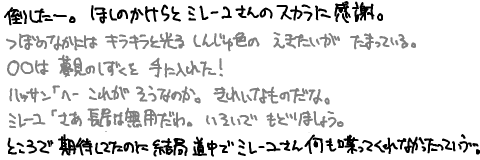 倒したー。ほしのかけらとミレーユさんのスカラに感謝。
つぼのなかには キラキラと光る しんじゅ色の えきたいが たまっている。
○○は 夢見のしずくを 手に入れた!
ハッサン「へー これが そうなのか。きれいなものだな。
ミレーユ「さあ 長居は無用だわ。いそいで もどりましょう。
ところで期待してたのに結局道中でミレーユさん何も喋ってくれなかったっていう…